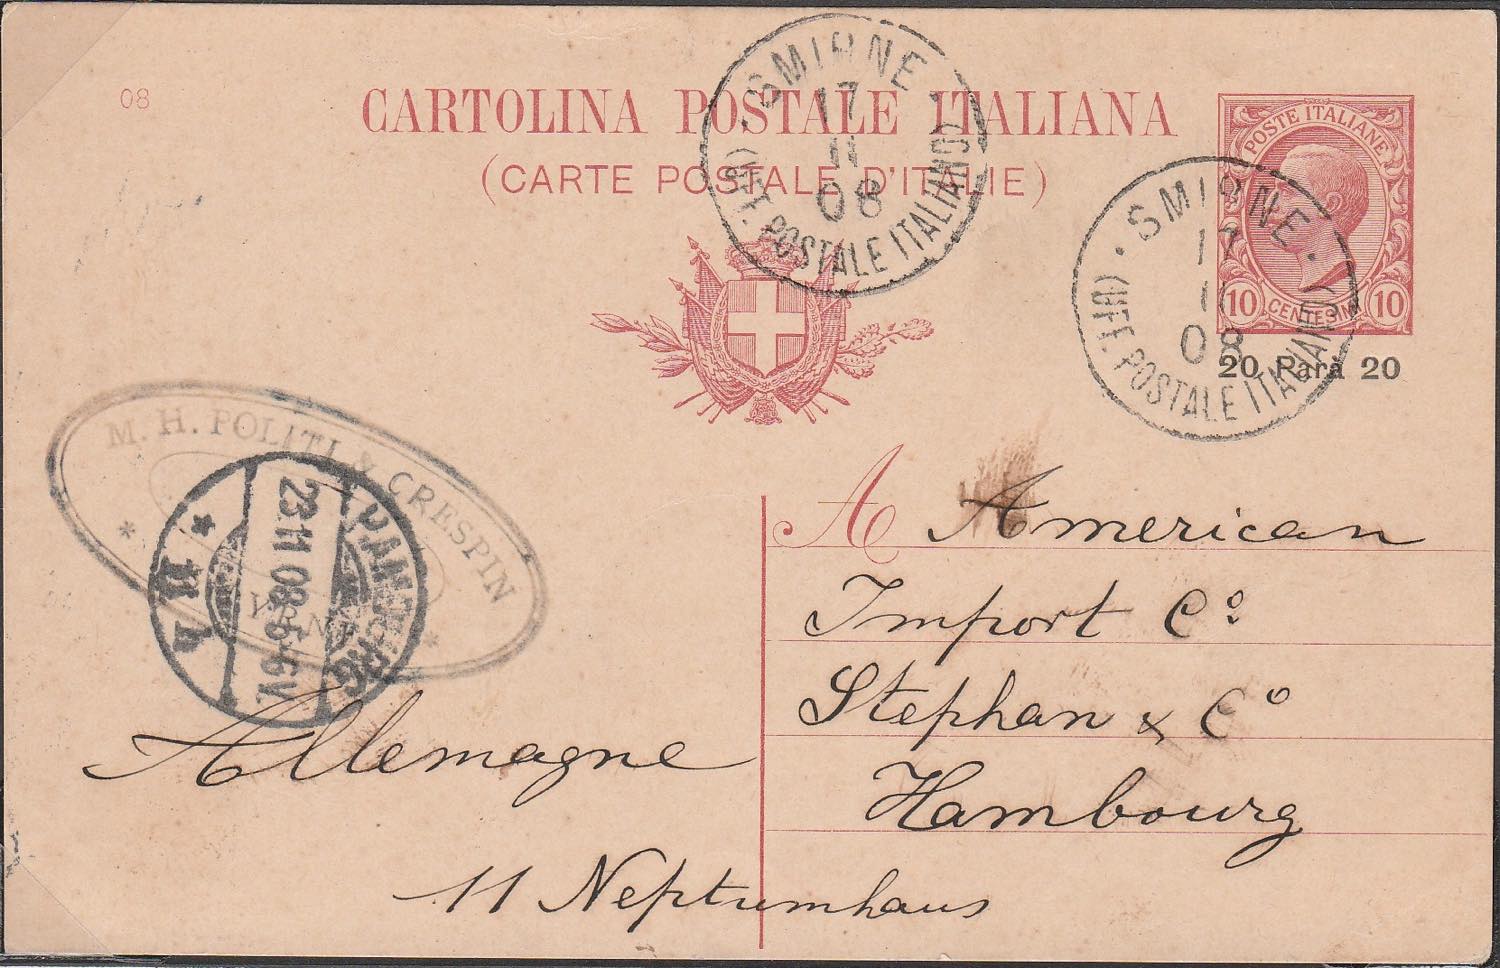 08
CARTOLINA POSTALE ITALIANA
(CARTE POSTALE D'ITALIE)
SMIRNE
17
11
08
(UFF. POSTALE ITALIANO)
POSTE ITALIANE
10 CENTESIMI 10
20 Parà 20
SMIRNE
17
11
08
(UFF. POSTALE ITALIANO)
M. H. POLITI & CRESPIN
HAMBURG
23.11.08.5-6V.
* 11 *
A American
Import Co
Stephan & Co
Hambourg
Allemagne
11 Neptumhaus